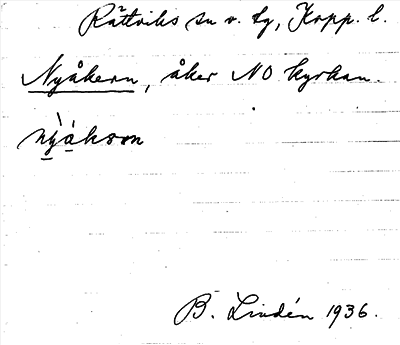 Rättviks sn o. tg, Kopp. l.
Nyåkern, åker NO kyrkan.
nyåkəɔn
B. Lindén 1936.